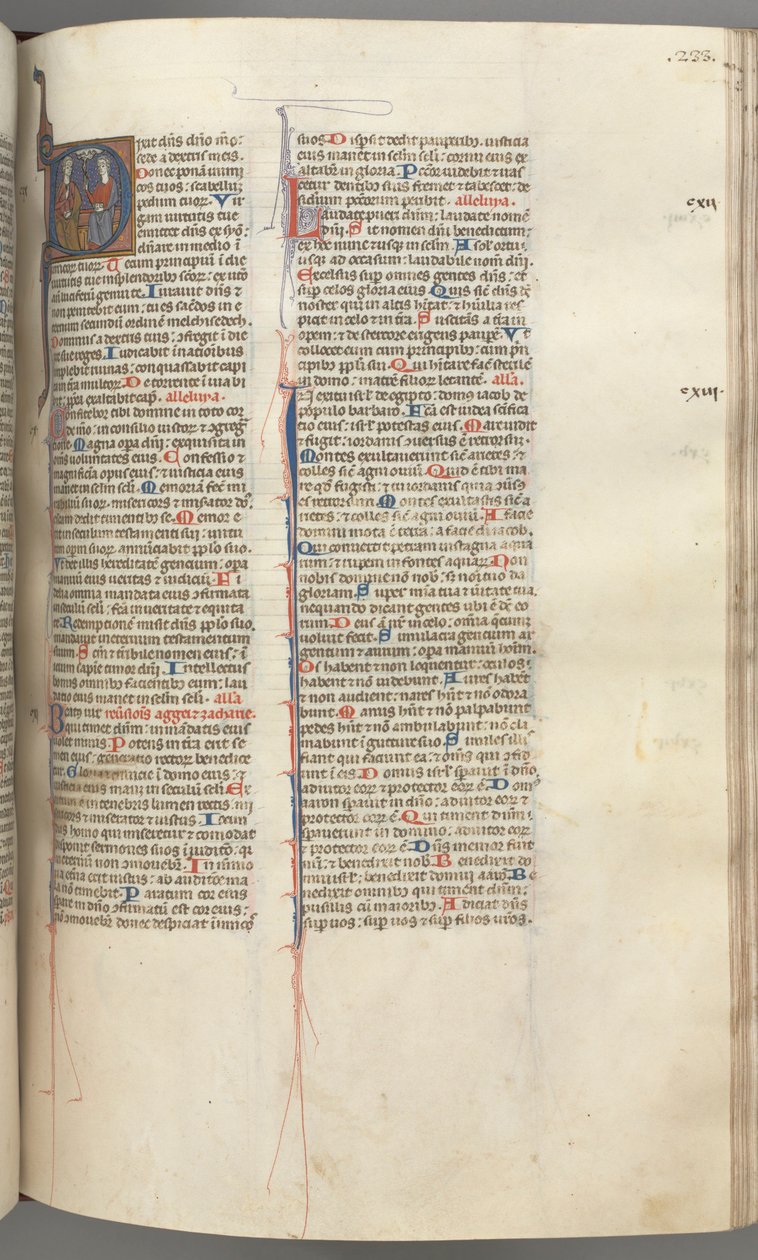 .233.
Dixit dn̄s dn̄o mō:
sede a dextris meis.
Donec ponā inimi
cos tuos: scabellū
pedum tuor. Vir
gam uirtutis tue
emittet dn̄s ex syō:
dn̄are in medio ī
imicor tuor. Tecum principiū ī die
uirtutis tue īsplendoribꝫ sc̄or: ex utō
an̄ luciferū genui te. Iurauit dn̄s ⁊
non penitebit eum: tu es sac̄dos in e
ternum secundū ordinē melchisedech.
Dominus a dextris tuis: ꝯfregit ī die
ire sue reges. Iudicabit ī nacioībus
implebit ruinas: conquassabit capi
ta ī tr̄a multor. De torrente ī uia bi
bet: ꝓpt̄a exaltabit cap̄. alleluya.
Confitebor tibi domine in toto cor
de mō: in consilio iustor ⁊ ꝯgreg
tione. Magna oꝑa dn̄i: exquisita in
om̄s voluntates eius. Confessio ⁊
magnificīa opus eius: ⁊ iusticia eius
manet in sclm̄ scl̄i. Memoriā fec̄ mi
rabiliū suor: misericors ⁊ misator dn̄s:
escam dedit timentibꝫ se. Memor e
rit in seculum testamenti sui: uirtu
tem opꝫ suor annūciabit ꝑplo suo.
Vt det illis hereditatē gencium: oꝑa
manuū eius ueritas ⁊ iudiciū. Fi
delia omnia mandata eius ꝯfirmata
in seculū scl̄i: fc̄a in ueritate ⁊ equita
te. Redemptionē misit dn̄s ꝑplo suo.
mandauit in eternum testamentum
suum. Sc̄m ⁊ tr̄ibile nomen eius: ī
icium sapīe timor dn̄i. Intellectus
bonus omnibꝫ facientibꝫ eum: lau
datio eius manet in sclm̄ scl̄i. all̄a
cxi
Beatꝫ uir reūsiois aggei ⁊ zacharie.
qui timet dn̄m: in mādatis eius
uolet nimis. Potens in tr̄a erit se
men eius: generatio rector benedice
tur. Gloria ⁊ diuicie ī domo eius: ⁊
iusticia eius man̄ in seculū scl̄i. Ex
ortum ē in tenebris lumen rectis: mi
sericors ⁊ miserator ⁊ iustus. Iocun
dus homo qui miseretur ⁊ comodat
disponit sermones suos ī iudicō: qꝫ
in eternū non ꝯmouebit̄. In memo
ria et̄na erit iustus: ab auditiōe ma
la nō timebit. Paratum cor eius
sꝑare in dn̄o ꝯfirmatū est cor eius:
nō ꝯmouebit̄ donec despiciat īimicos
suos. Dispsit dedit pauperibꝫ. iusticia
eius manet in sclm̄ scl̄i: cornu eius ex
altabit̄ in gloria. Pecc̄or uidebit ⁊ iras
cetur dentibꝫ suis fremet ⁊ tabescet: de
siderium pecc̄orum peribit. alleluya.
cxii
Laudate pueri dn̄m: laudate nomē
dn̄i. Sit nomen dn̄i benedictum:
ex hoc nunc ⁊ usqꝫ in sclm̄. A sol ortu ı
usqꝫ ad occasum: laudabile nom̄ dn̄i.
Excelsus suꝑ omnes gentes dn̄s: et
suꝑ celos gloria eius. Quis sic̄ dn̄s dē
noster qui in altis hītat: ⁊ hūilia res
picit in celo ⁊ in t̄ra. Suscitās a t̄ra in
opem: ⁊ de stercore erigens pauꝑē. Vt
collocet eum cum principibꝫ: cum prī
cipibꝫ ꝑpli sui. Qui hītare fac̄ sterilē
in domo: matrē filior letantē. all̄a.
cxiii.
In exitu isr̄l de egipto: domꝫ iacob de
populo barbaro. Fc̄a est iudea scīfica
tio eius: isr̄l potestas eius. Mare uidit
⁊ fugit: iordanis ꝯuersus ē retrorsꝫ.
Montes exultauerunt sic̄ arietes: ⁊
colles sic̄ agni ouiū. Quid ē tibi ma
re qd̄ fugisti: ⁊ tu iordanis quia ꝯūsꝫ
es retrorsum. Montes exultastis sic̄ a
rietes: ⁊ colles sic̄ agni ouiū. A facie
domini mota ē terra: a facie dī iacob.
Qui conuertit petram in stagna aqua
rum: ⁊ rupem in fontes aquar. Non
nobis domine nō nob̄: sꝫ noī tuo da
gloriam. Super mīa tua ⁊ uitate tua:
nequando dicant gentes ubi ē dē eo
rum. Deus aū nr̄ in celo: om̄a qcūqꝫ
uoluit fecit. Simulacra gencium ar
gentum ⁊ aurum: oꝑa manuū hoīm.
Os habent ⁊ non loquentur: oculos:
habent ⁊ nō uidebunt. Aures habēt
⁊ non audient: nares hn̄t ⁊ nō odora
bunt. Manus hn̄t ⁊ nō palpabunt
pedes hn̄t ⁊ nō ambulabunt: nō cla
mabunt ī gutture suo. Similes illis
fiant qui faciunt ea: ⁊ om̄s qui ꝯfid
unt ī eis. Domus isr̄l sꝑauit ī dn̄o.
adiutor eor ⁊ protector eor ē. Domꝫ
aaron sꝑauit in dn̄o: adiutor eor ⁊
protector eor ē. Qui timent dn̄m:
sꝑauerunt in domino: adiutor eor
⁊ protector eor ē. Dn̄s memor fuit
nr̄i: ⁊ benedixit nob̄. Benedixit do
mui isr̄l: benedixit domui aarō. Be
nedixit omnibꝫ qui timent dn̄m:
pusillis cū maioribꝫ. Adiciat dn̄s
suꝑ uos: suꝑ uos ⁊ suꝑ filios uros.